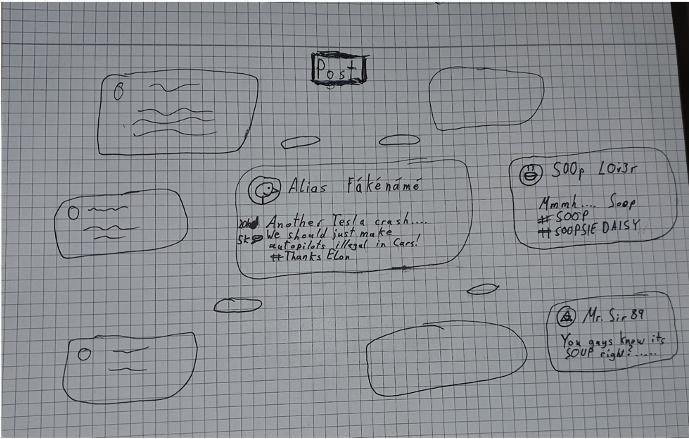 Post
Alias Fákénámé
Another Tesla crash....
5k We should just make
autopilots illegal in Cars!
#Thanks Elon
SOOp LOv3r
Mmmh.... Soop
#SOOP
#SOOPSIE DAISY
Mr. Sir 89
You guys know its
SOUP right?.....